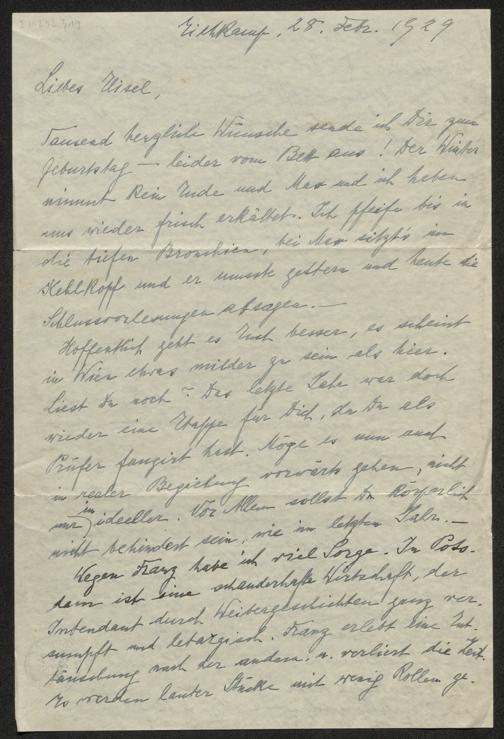 Eichkamp, 28. Febr. 1929
Liebes Wisel,
Tausend herzliche Wünsche sende ich Dir zum
Geburtstag – leider vom Bett aus! Der Winter
nimmt kein Ende und Max und ich haben
uns wieder frisch erkältet. Ich pfeife bis in
die tiefen Bronchien, bei Max sitzt's im
Kehlkopf und er musste gestern und heute die
Schlussvorlesungen absagen. –
Hoffentlich geht es Euch besser, es scheint
in Wien etwas milder zu sein als hier.
Liest Du noch? Das letzte Jahr war doch
wieder eine Etappe für Dich, da Du als
Prüfer fungirt hast. Möge es nun auch
in realer Beziehung vorwärts gehen, nicht
nur in ideeller. Vor Allem sollst Du körperlich
nicht behindert sein, wie im letzten Jahr. –
Wegen Franz habe ich viel Sorge. In Pots-
dam ist eine schauderhafte Wirtschaft, der
Intendant durch Weibergeschichten ganz ver-
sumpft und letargisch. Franz erlebt eine Ent-
täuschung nach der andern u. verliert die Zeit.
Es werden lauter Stücke mit wenig Rollen ge-